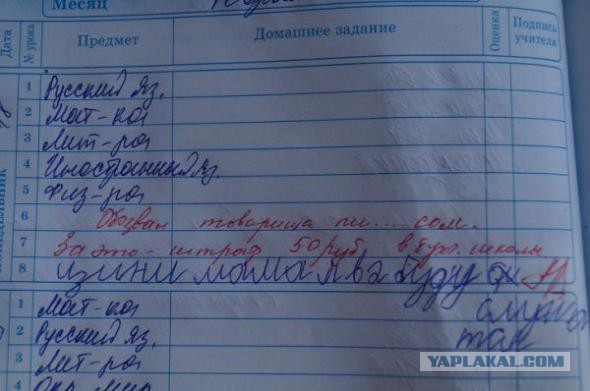 Месяц
Дата № урока Предмет Домашнее задание Оценка Подпись учителя
1 Русский яз.
2 Мат-ка
3 Лит-ра
4 Иностранный яз.
5 Физ-ра
6 Обозвал товарища пи....сом.
7 За это - штраф 50 руб. в бух. школы
8 мама буду
1 Мат-ка
2 Русский яз.
так
3 Лит-ра
4 Окр. мир
YAPLAKAL.COM